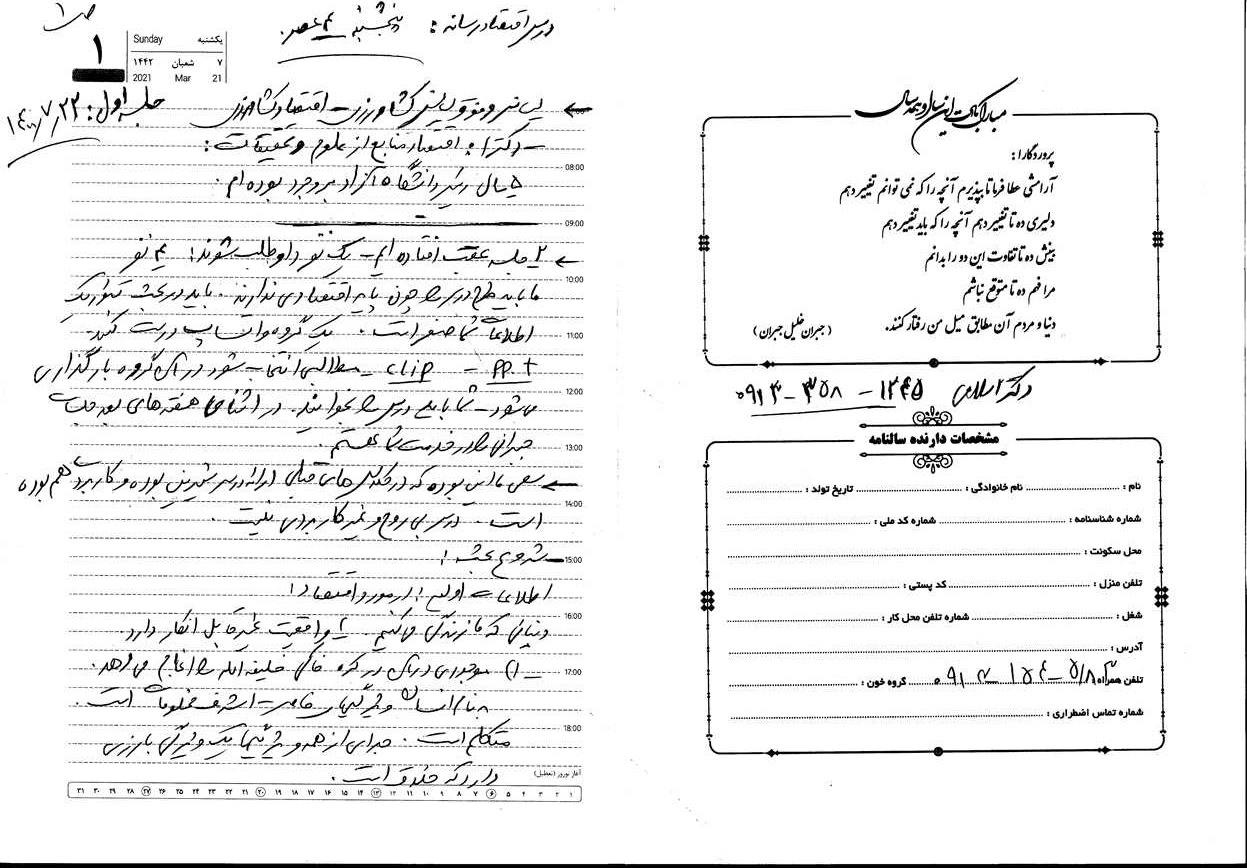 درس اقتصاد رسانه: پنجشنبه ۴ عصر.
ص ۱
۱
Sunday یکشنبه
۱۴۴۲ شعبان ۷
2021 Mar 21
جلسه اول: ۱۴۰۰/۷/۲۲
لیسانس و فوق لیسانس کشاورزی - اقتصاد کشاورزی
- دکترا: اقتصاد منابع از علوم و تحقیقات:
08:00
۵ سال رئیس دانشگاه آزاد بروجرد بوده ام.
09:00
۲ جلسه عقب افتاده ایم - یک نفر داوطلب شوند! ۴ نفر
10:00
ما باید طرح درس را چون پایه اقتصادی ندارند. باید در بحث
اطلاعات شما صفر است. یک گروه واتساپ درست کنید.
11:00
PPT - clip - مطالبی انتخاب شود در آن گروه بارگذاری
12:00
می شود - شما باید درس را بخوانید. در اثنای هفته های بعد جلسات
جبرانی را در خدمت شما هستم.
13:00
سعی ما این بوده که در کلاس های قبلی ارائه درس شیرین بوده و کاربردی هم بوده
14:00
است. درس بی روح و غیر کاربردی نیست.
شروع بحث:
15:00
اطلاعات اولیه در مورد اقتصاد:
16:00
دنیایی که ما زندگی می کنیم. ۲ واقعیت غیر قابل انکار دارد.
۱) موجودی در این در کره خاکی خلیفه الله را انجام می دهد.
17:00
بنام انسان ویژگیهای خاص - اشرف مخلوقات است.
18:00
متکلم است. جدای از همه ویژگیها یک ویژگی بارزی
دارد که خلاق است.
آغاز نوروز (تعطیل)
۱ ۲ ۳ ۴ ۵ ۶ ۷ ۸ ۹ ۱۰ ۱۱ ۱۲ ۱۳ ۱۴ ۱۵ ۱۶ ۱۷ ۱۸ ۱۹ ۲۰ ۲۱ ۲۲ ۲۳ ۲۴ ۲۵ ۲۶ ۲۷ ۲۸ ۲۹ ۳۰ ۳۱
مبارک بادت این سال و همه سال
پروردگارا:
آرامشی عطا فرما تا بپذیرم آنچه را که نمی توانم تغییر دهم
دلیری ده تا تغییر دهم آنچه را که باید تغییر دهم
بینش ده تا تفاوت این دو را بدانم
مرا فهم ده تا متوقع نباشم
دنیا و مردم آن مطابق میل من رفتار کنند.
(جبران خلیل جبران)
دکتر اسلامی ۱۲۴۵ - ۳۵۸ - ۰۹۱۳
مشخصات دارنده سالنامه
نام: نام خانوادگی: تاریخ تولد:
شماره شناسنامه: شماره کد ملی:
محل سکونت:
تلفن منزل: کد پستی:
شغل: شماره تلفن محل کار:
آدرس:
تلفن همراه: گروه خون:
شماره تماس اضطراری: